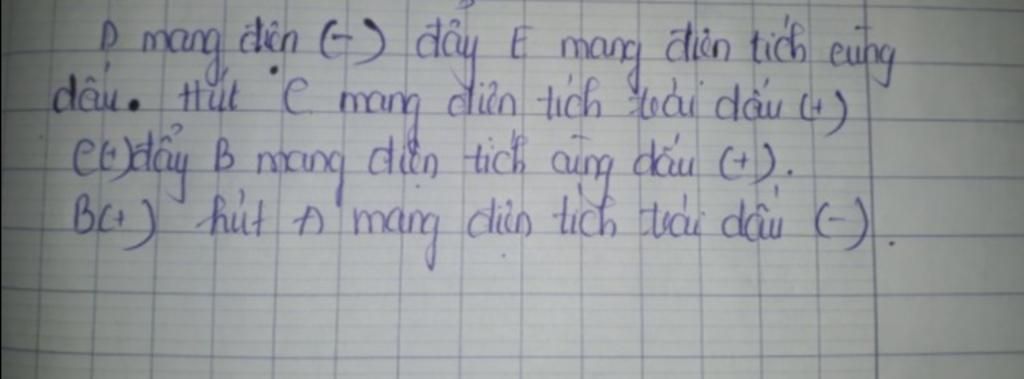 D mang điện (-) đẩy E mang điện tích cùng
dấu. Hút C mang điện tích trái dấu (+)
C(+) đẩy B mang điện tích cùng dấu (+).
B(+) hút A mang điện tích trái dấu (-).